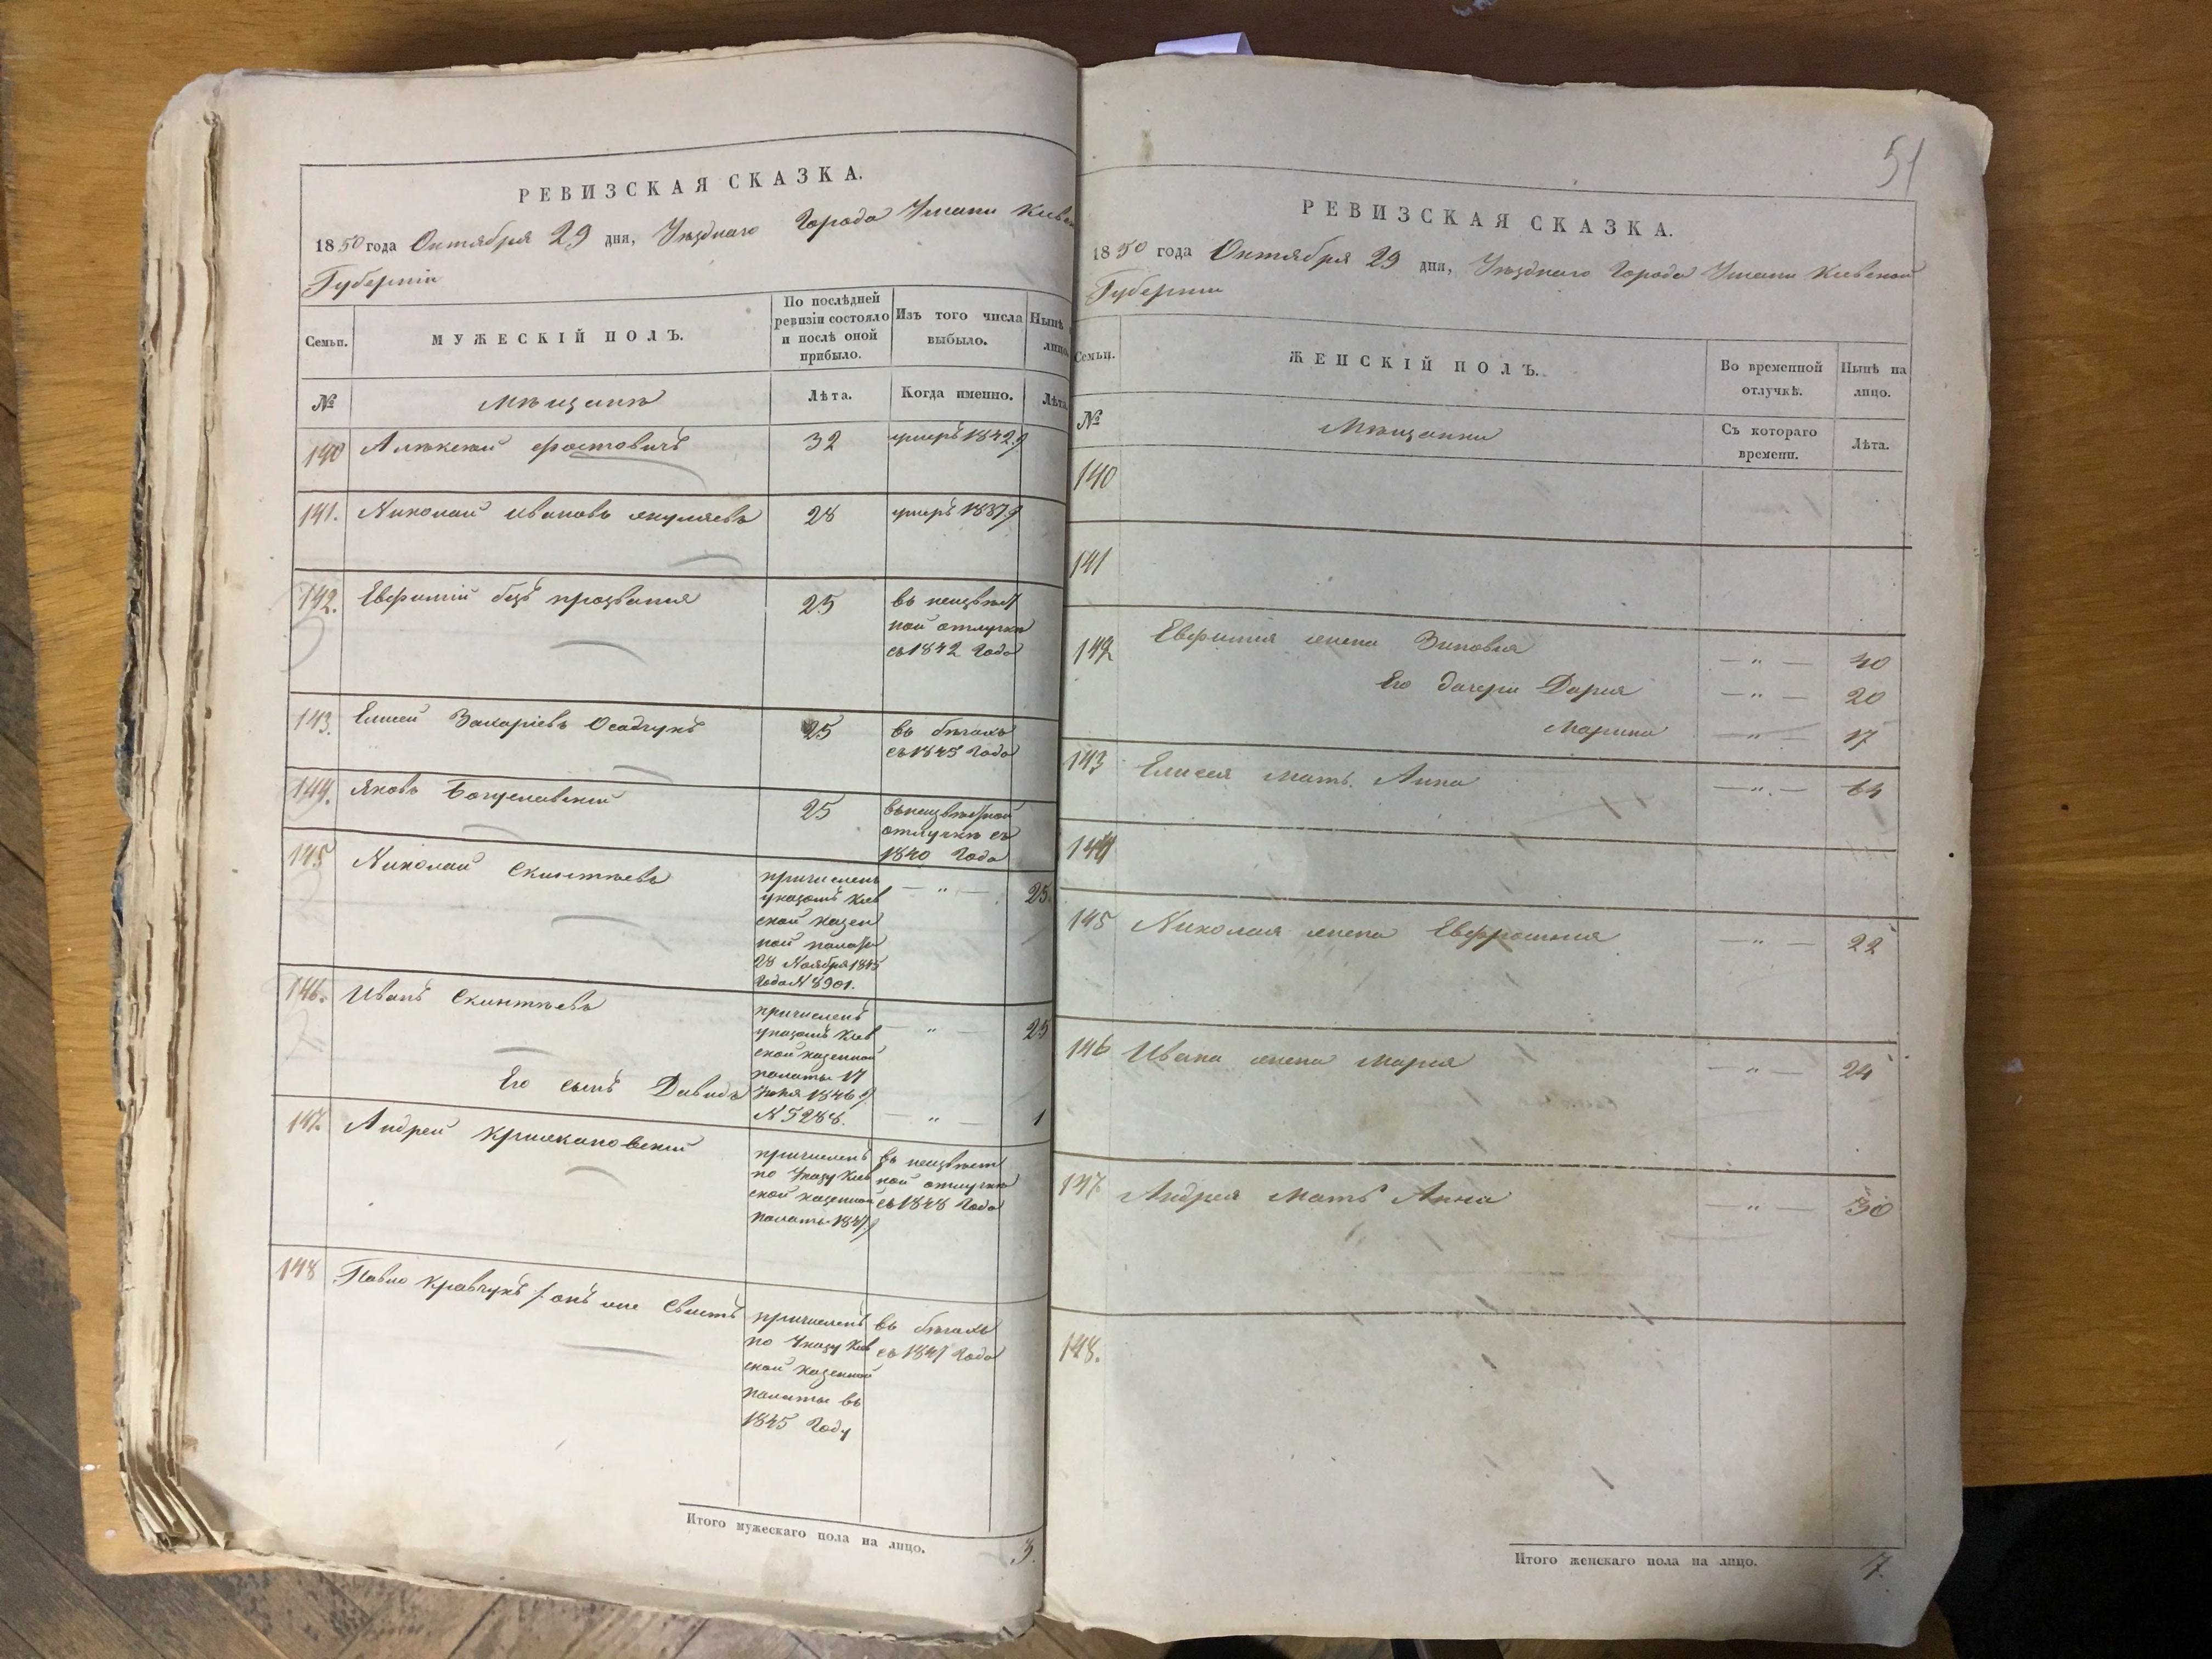 РЕВИЗСКАЯ СКАЗКА.
1850 года Октября 29 дня, Уѣзднаго Города Умани Киев
Губерніи
Семьи.
МУЖЕСКІЙ ПОЛЪ.
По послѣдней
ревизіи состояло
и послѣ оной
прибыло.
Изъ того числа
выбыло.
Нынѣ
лицо.
№
Мѣщанѣ
Лѣта.
Когда именно.
Лѣта.
140 Алѣксѣй 32 умеръ 1842
141. Николай Ивановъ 28 умеръ 1837
142. Евфимій безъ прозванія 25 въ неизвѣст
ной отлучкѣ
съ 1842 Года
143. Елисей Захаріевъ Осадчукъ 25 въ бѣгахъ
съ 1845 Года
144. Яковъ Богуславскій 25 въ неизвѣстной
отлучкѣ съ
1840 Года
145 Николай причисленъ — „ — 25.
указомъ Кіев
ской казен
ной палаты
28 Ноября 1845
Года № 8901.
146. Иванъ причисленъ — „ — 25
указомъ Кіев
ской казенной
палаты 17
Его сынъ Давидъ 1846 — „ — 1
№ 5288.
147. Андрей причисленъ въ неизвѣст
по Указу Кіев ной отлучкѣ
ской казенной съ 1848 Года
палаты 1847
148 Павло Кравчукъ онъ же причисленъ въ бѣгахъ
по Указу Кіев съ 1847 Года
ской казенной
палаты въ
1845 Году
Итого мужескаго пола на лицо. 3.
51
РЕВИЗСКАЯ СКАЗКА.
1850 года Октября 29 дня, Уѣзднаго Города Умани Киевской
Губернии
Семьи.
ЖЕНСКІЙ ПОЛЪ.
Во временной
отлучкѣ.
Нынѣ на
лицо.
№
Мѣщанки
Съ котораго
времени.
Лѣта.
140
141
142 Евфимія жена Зиновія — „ — 40
Его дочери Дарія — „ — 20
Марина — „ — 17
143 Елисея мать Анна — „ — 64
144
145 Николая жена Евфросинія — „ — 22
146 Ивана жена Марія — „ — 24
147. Андрея Мать Анна — „ — 50
148.
Итого женскаго пола на лицо. 7.